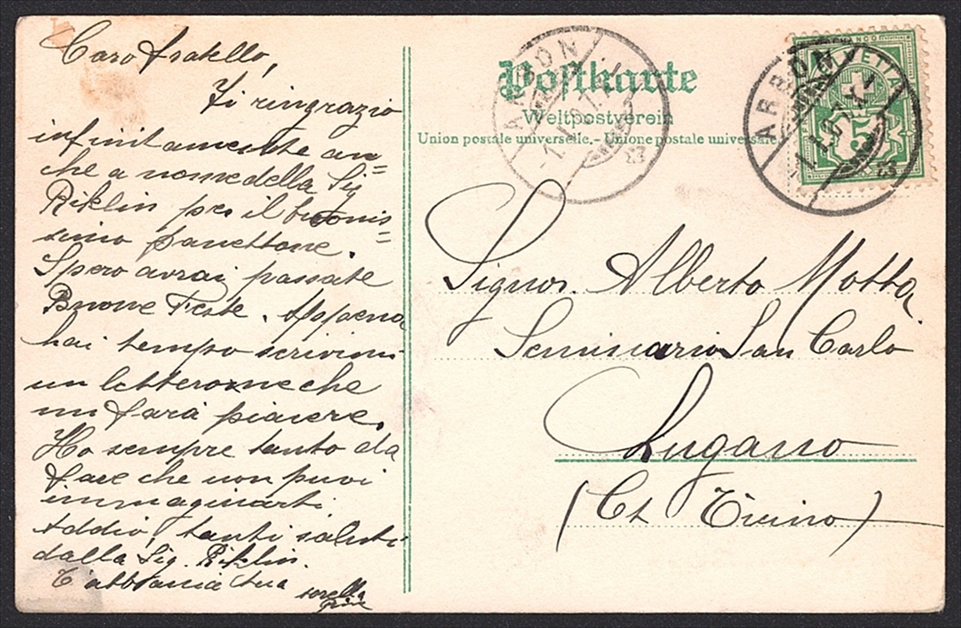 Caro fratello,
Ti ringrazio
infinitamente an=
che a nome della Sig
Riklin per il buonis=
simo panettone.
Spero avrai passate
Buone Feste. Appena
hai tempo scrivimi
un letterone che
mi farà piacere.
Ho sempre tanto da
fare che non puoi
immaginarti
Addio, tanti saluti
dalla Sig. Riklin.
T'abbraccia tua
sorella
Postkarte
Weltpostverein
Union postale universelle. - Unione postale universale
ARBON
HELVETIA
FRANCO
5
ARBON
Signor. Alberto Motta
Seminario San Carlo
Lugano
(Ct Ticino)